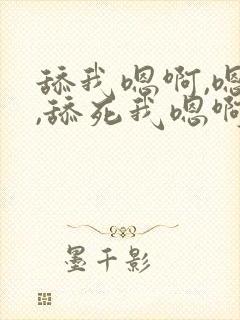 舔我嗯啊,嗯
,舔死我嗯啊
墨千影